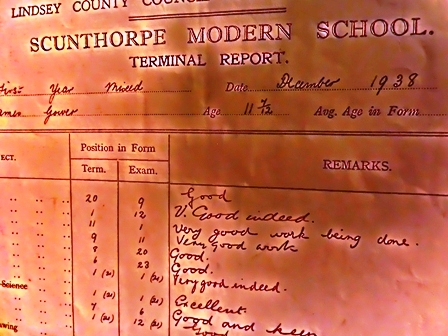 LINDSEY COUNTY COUNC
SCUNTHORPE MODERN SCHOOL.
TERMINAL REPORT.
First Year Mixed Date December 1938
ames Gower Age 11 5/12 Avg. Age in Form
ECT. Position in Form REMARKS.
Term. Exam.
20 9 Good
1 12 V. Good indeed.
11 1 Very good work being done.
9 11 Very good work
8 20 Good.
6 23 Good.
1 1 Very good indeed.
-Science
1 1 Excellent.
7 6 Good and keen
awing 1 12